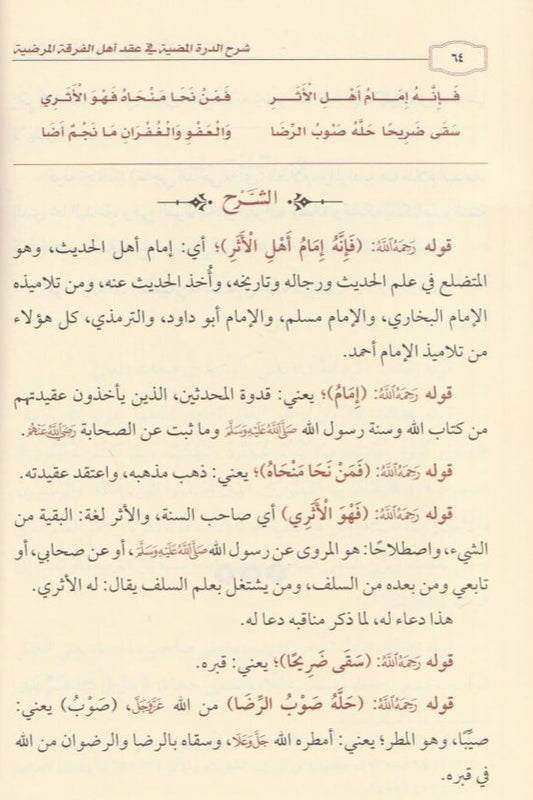 شرح الدرة المضية في عقد أهل الفرقة المرضية
٦٤
فَإِنَّهُ إِمَامُ أَهْلِ الْأَثَرِ فَمَنْ نَحَا مَنْحَاهُ فَهْوَ الْأَثَرِي
سَقَى ضَرِيحًا حَلَّهُ صَوْبُ الرِّضَا وَالْعَفْوِ وَالْغُفْرَانِ مَا نَجْمٌ أَضَا
الشَّرْح
قوله رَحِمَهُ ٱللَّهُ: (فَإِنَّهُ إِمَامُ أَهْلِ الْأَثَرِ)؛ أي: إمام أهل الحديث، وهو
المتضلع في علم الحديث ورجاله وتاريخه، وأُخذ الحديث عنه، ومن تلاميذه
الإمام البخاري، والإمام مسلم، والإمام أبو داود، والترمذي، كل هؤلاء
من تلاميذ الإمام أحمد.
قوله رَحِمَهُ ٱللَّهُ: (إِمَامُ)؛ يعني: قدوة المحدثين، الذين يأخذون عقيدتهم
من كتاب الله وسنة رسول الله صَلَّى ٱللَّهُ عَلَيْهِ وَسَلَّمَ وما ثبت عن الصحابة رَضِيَ ٱللَّهُ عَنْهُمْ.
قوله رَحِمَهُ ٱللَّهُ: (فَمَنْ نَحَا مَنْحَاهُ)؛ يعني: ذهب مذهبه، واعتقد عقيدته.
قوله رَحِمَهُ ٱللَّهُ: (فَهْوَ الْأَثَرِي) أي صاحب السنة، والأثر لغة: البقية من
الشيء، واصطلاحًا: هو المروى عن رسول الله صَلَّى ٱللَّهُ عَلَيْهِ وَسَلَّمَ، أو عن صحابي، أو
تابعي ومن بعده من السلف، ومن يشتغل بعلم السلف يقال: له الأثري.
هذا دعاء له، لما ذكر مناقبه دعا له.
قوله رَحِمَهُ ٱللَّهُ: (سَقَى ضَرِيحًا)؛ يعني: قبره.
قوله رَحِمَهُ ٱللَّهُ: (حَلَّهُ صَوْبُ الرِّضَا) من الله عَزَّ وَجَلَّ، (صَوْبُ) يعني:
صيِّبًا، وهو المطر؛ يعني: أمطره الله جَلَّ وَعَلَا، وسقاه بالرضا والرضوان من الله
في قبره.